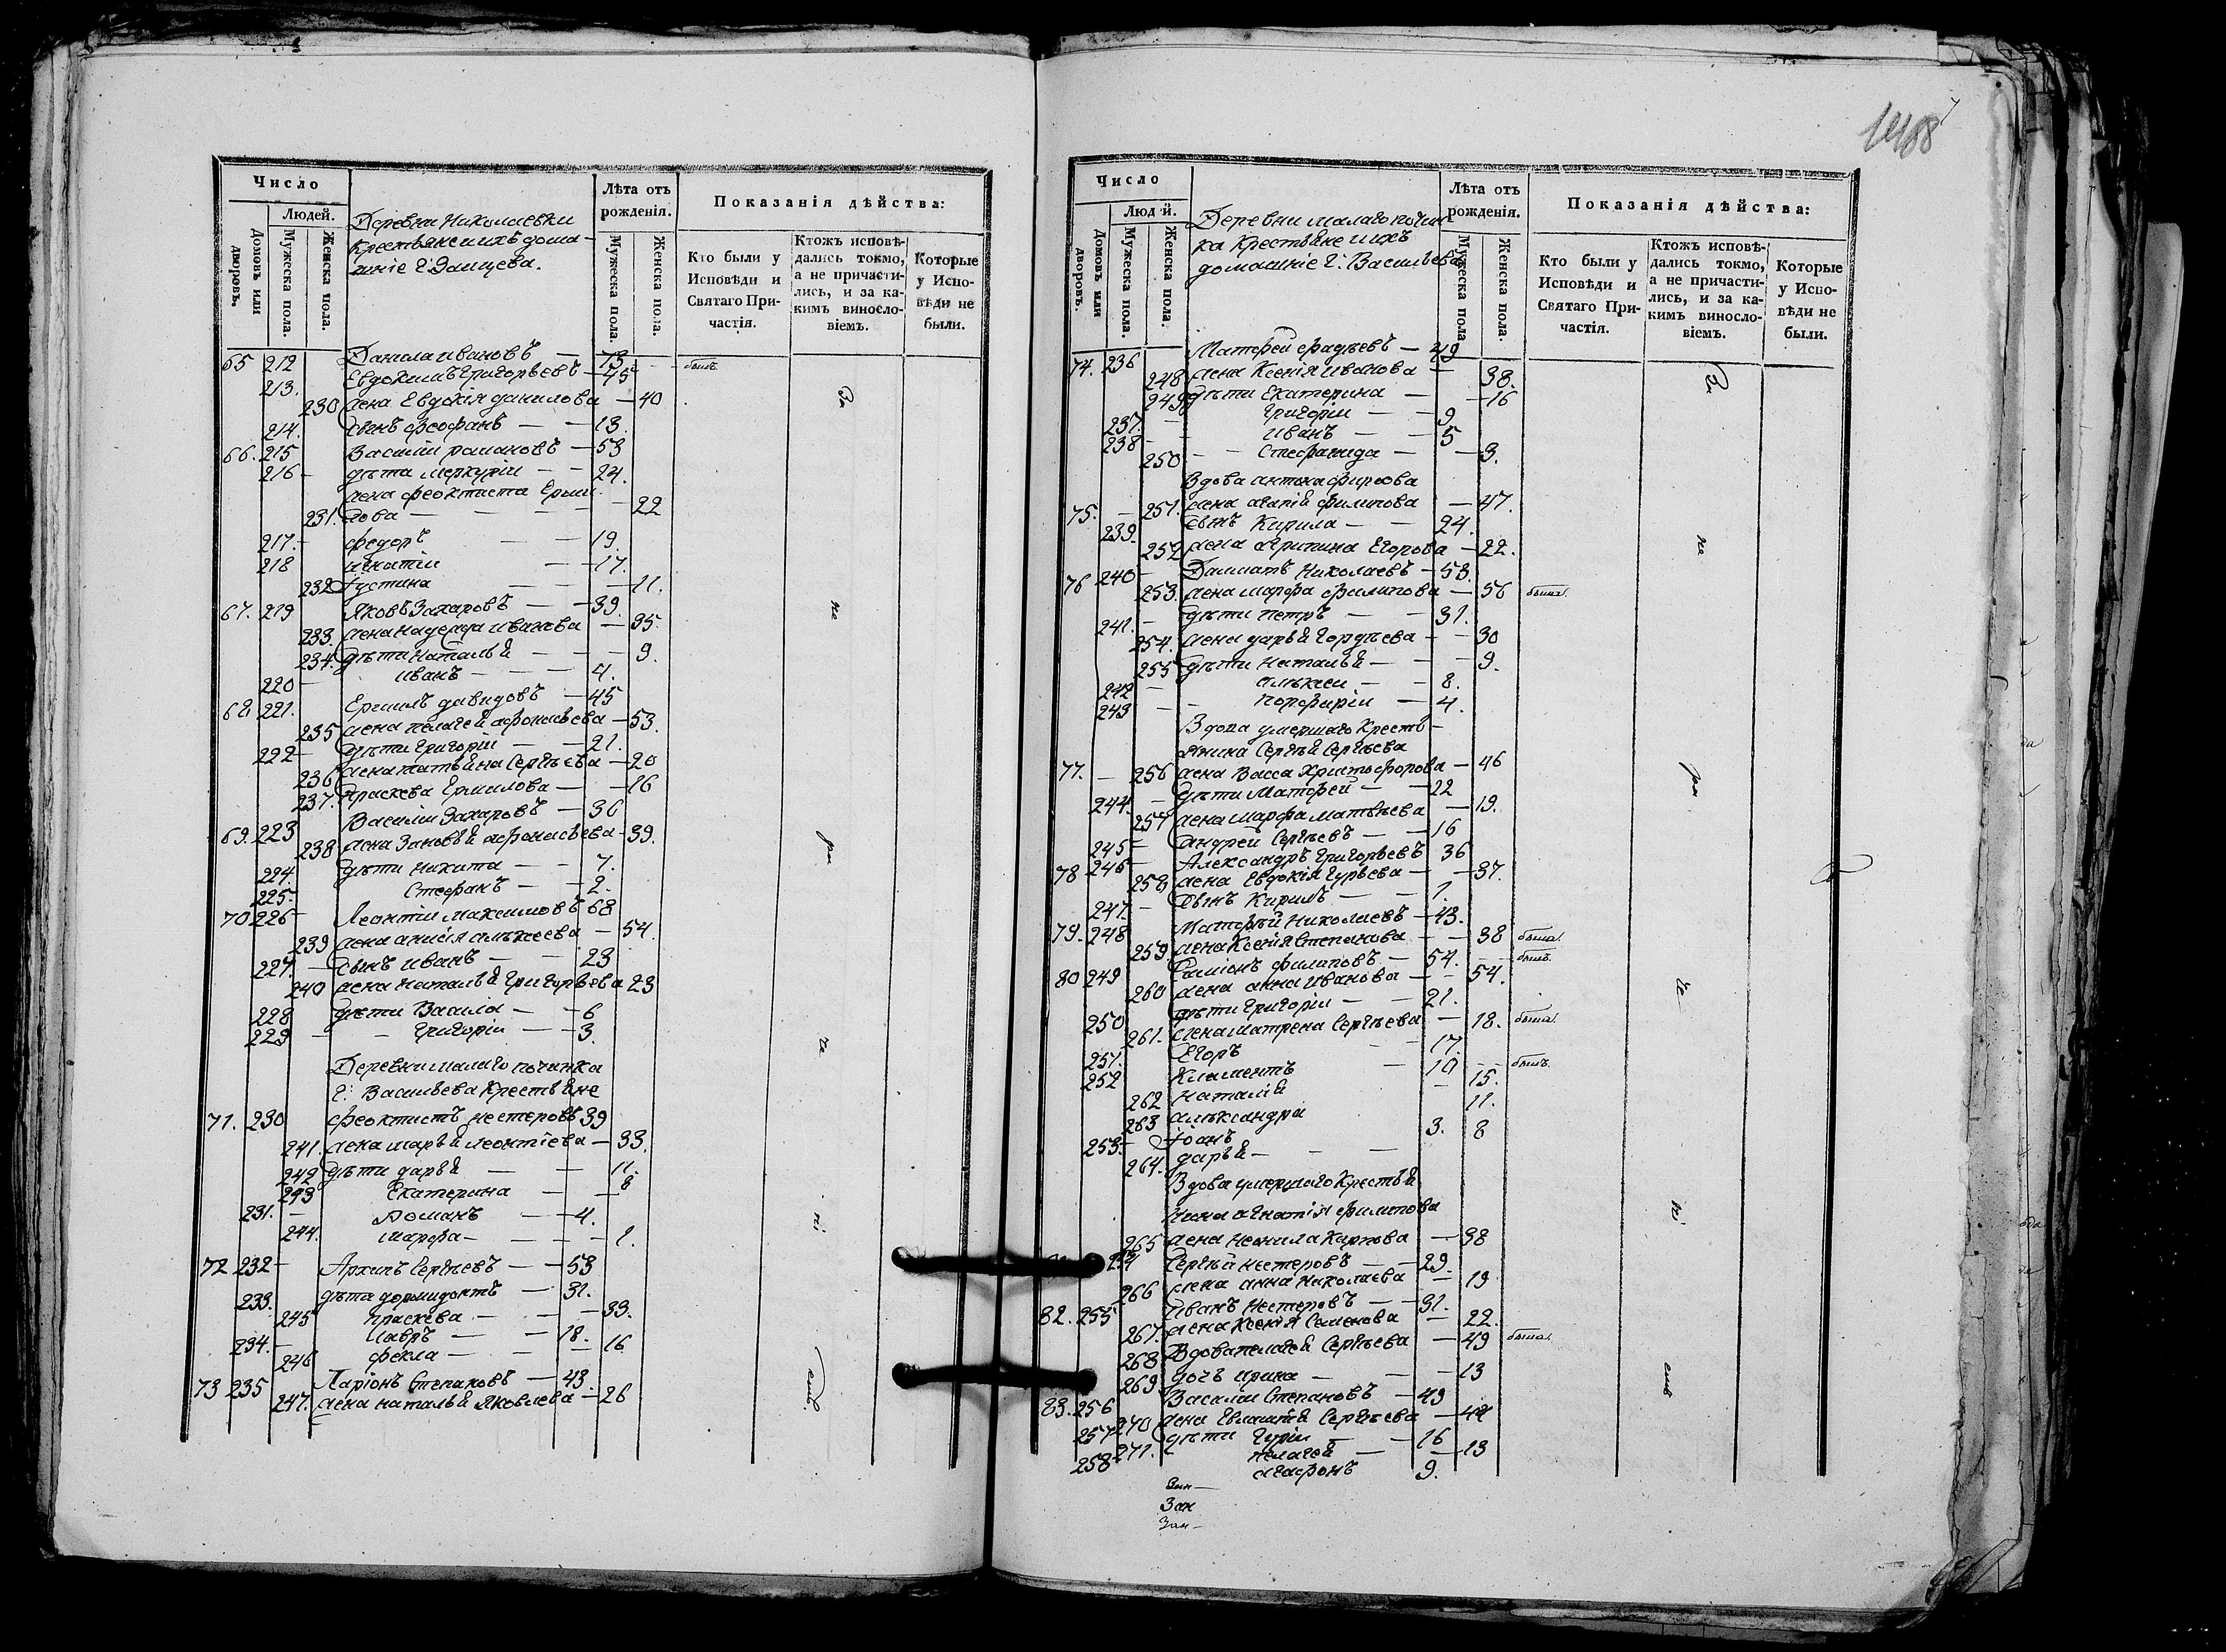 Число
Людей.
Домовъ или дворовъ.
Мужеска пола.
Женска пола.
Деревни Николаевки
Крестьяне и ихъ дома-
шніе Г: Заицева.
Лѣта отъ рожденія.
Мужеска пола.
Женска пола.
Показанія дѣйства:
Кто были у Исповѣди и Святаго Причастія.
Ктожъ исповѣ-
дались токмо,
а не причасти-
лись, и за ка-
кимъ винос­ло-
віемъ.
Которые
у Испо-
вѣди не
были.
65 212 Данила Ивановъ — 73 былъ.
213. Евдокимъ Григорьевъ — 45
230 жена Евдокія Данилова — 40
214. сынъ Феофанъ — 13.
66. 215 Василій Романовъ — 53
216 дѣти Меркурій — 24.
жена Феоктиста Ерми-
231. лова — 22
217. Федоръ — 19.
218 Игнатій — 17.
232 Іустина — 11.
67. 219 Яковъ Захаровъ — 39.
233. жена Надежда Иванова — 35.
234. дѣти Наталья — 9.
220 Иванъ — 4.
68. 221. Ермилъ Давидовъ — 45
235 жена Пелагея Афонасьева — 53.
222 дѣти Григорій — 21.
236 жена Татьяна Сергѣева — 20
237. Праскева Ермилова — 16
69. 223 Василій Захаровъ — 36
238 жена Зиновья Афонасьева — 39.
224. дѣти Никита — 7.
225. Стефанъ — 2.
70 226 Леонтій Максимовъ 68
239 жена Анисія Алѣксеева — 54.
227. сынъ Иванъ — 23
240 жена Наталья Григорьева 23
228 дѣти Василій — 6
229 Григорій — 3.
Деревни Малаго Починка
Г: Васильева Крестьяне
71. 230 Феоктистъ Нестеровъ 39
241. жена Марья Леонтіева — 33.
242 дѣти Дарья — 11.
243 Екатерина — 8
231. Романъ — 4.
244. Марфа — 1.
72 232 Архипъ Сергѣевъ — 53
233. дѣти Дормидонтъ — 31.
245 Праскева — 33.
234. Лавръ — 18.
246 Фекла — 16
73 235 Ларіонъ Степановъ — 43.
247. жена Наталья Яковлева — 26
За
не
ра
че
ні
емъ.
Число
Людей.
Домовъ или дворовъ.
Мужеска пола.
Женска пола.
Деревни Малаго Почин-
ка Крестьяне и ихъ
домашніе Г: Васильева
Лѣта отъ рожденія.
Мужеска пола.
Женска пола.
Показанія дѣйства:
Кто были у Исповѣди и Святаго Причастія.
Ктожъ исповѣ-
дались токмо,
а не причасти-
лись, и за ка-
кимъ винос­ло-
віемъ.
Которые
у Испо-
вѣди не
были.
74. 236 Матфей Фадѣевъ — 49
248 жена Ксенія Иванова — 38.
249 дѣти Екатерина — 16
237. Григорій — 9
238 Иванъ — 5
250 Стефанида — 3.
Вдова Антона Фирсова
75. 251. жена Агапія Филипова — 47.
239. сынъ Кирила — 24.
252 жена Агрипина Егорова — 22.
76 240 Далматъ Николаевъ — 53.
253. жена Марфа Филипова — 56 была.
241. дѣти Петръ — 31.
254. жена Дарья Гордѣева — 30
255 дѣти Наталья — 9.
242 Алѣксеи — 8.
243 Порфирій — 4.
Вдова умершаго Кресть-
янина Сергѣя Сергѣева
77. 256 жена Васса Христофорова — 46
244. дѣти Матфей — 22
257 жена Марфа Матвѣева — 19.
245 Андрей Сергѣевъ — 16
78 246 Александръ Григорьевъ 36
258 жена Евдокія Гурьева — 37.
247. сынъ Кирилъ — 1.
79. 248 Матфей Николаевъ — 43.
259 жена Ксенія Степанова — 38 была.
80 249 Самсонъ Филиповъ — 54. былъ.
260 жена Анна Иванова — 54.
250 дѣти Григорій — 21.
261. жена Матрена Сергѣева — 18. была.
251. Егоръ 17.
252 Климентъ — 10 былъ.
262 Наталія — 15.
263 Алѣксандра 11.
253. Іоанъ 3.
264. Дарья — 8
Вдова умершаго Крестья-
нина Игнатія Филипова
265 жена Неонила Карпова — 38
254 Сергѣй Нестеровъ — 29.
266 жена Анна Николаева — 19
82. 255 Иванъ Нестеровъ — 31.
267. жена Ксенія Семенова — 22.
268 Вдова Пелагея Сергѣева — 49 была.
269 дочь Ирина — 13
83. 256 Василій Степановъ — 49
270 жена Евлампія Сергѣева — 44
257 дѣти Гурій — 16
271. Пелагея — 13
258 Агафонъ 9.
За
не
ра
че
ні
емъ